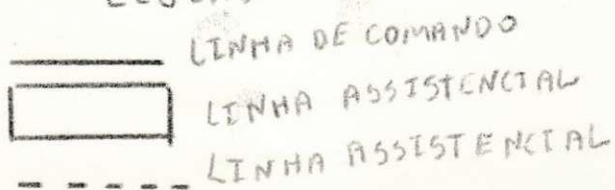 LINHA DE COMANDO
LINHA ASSISTENCIAL
LINHA ASSISTENCIAL